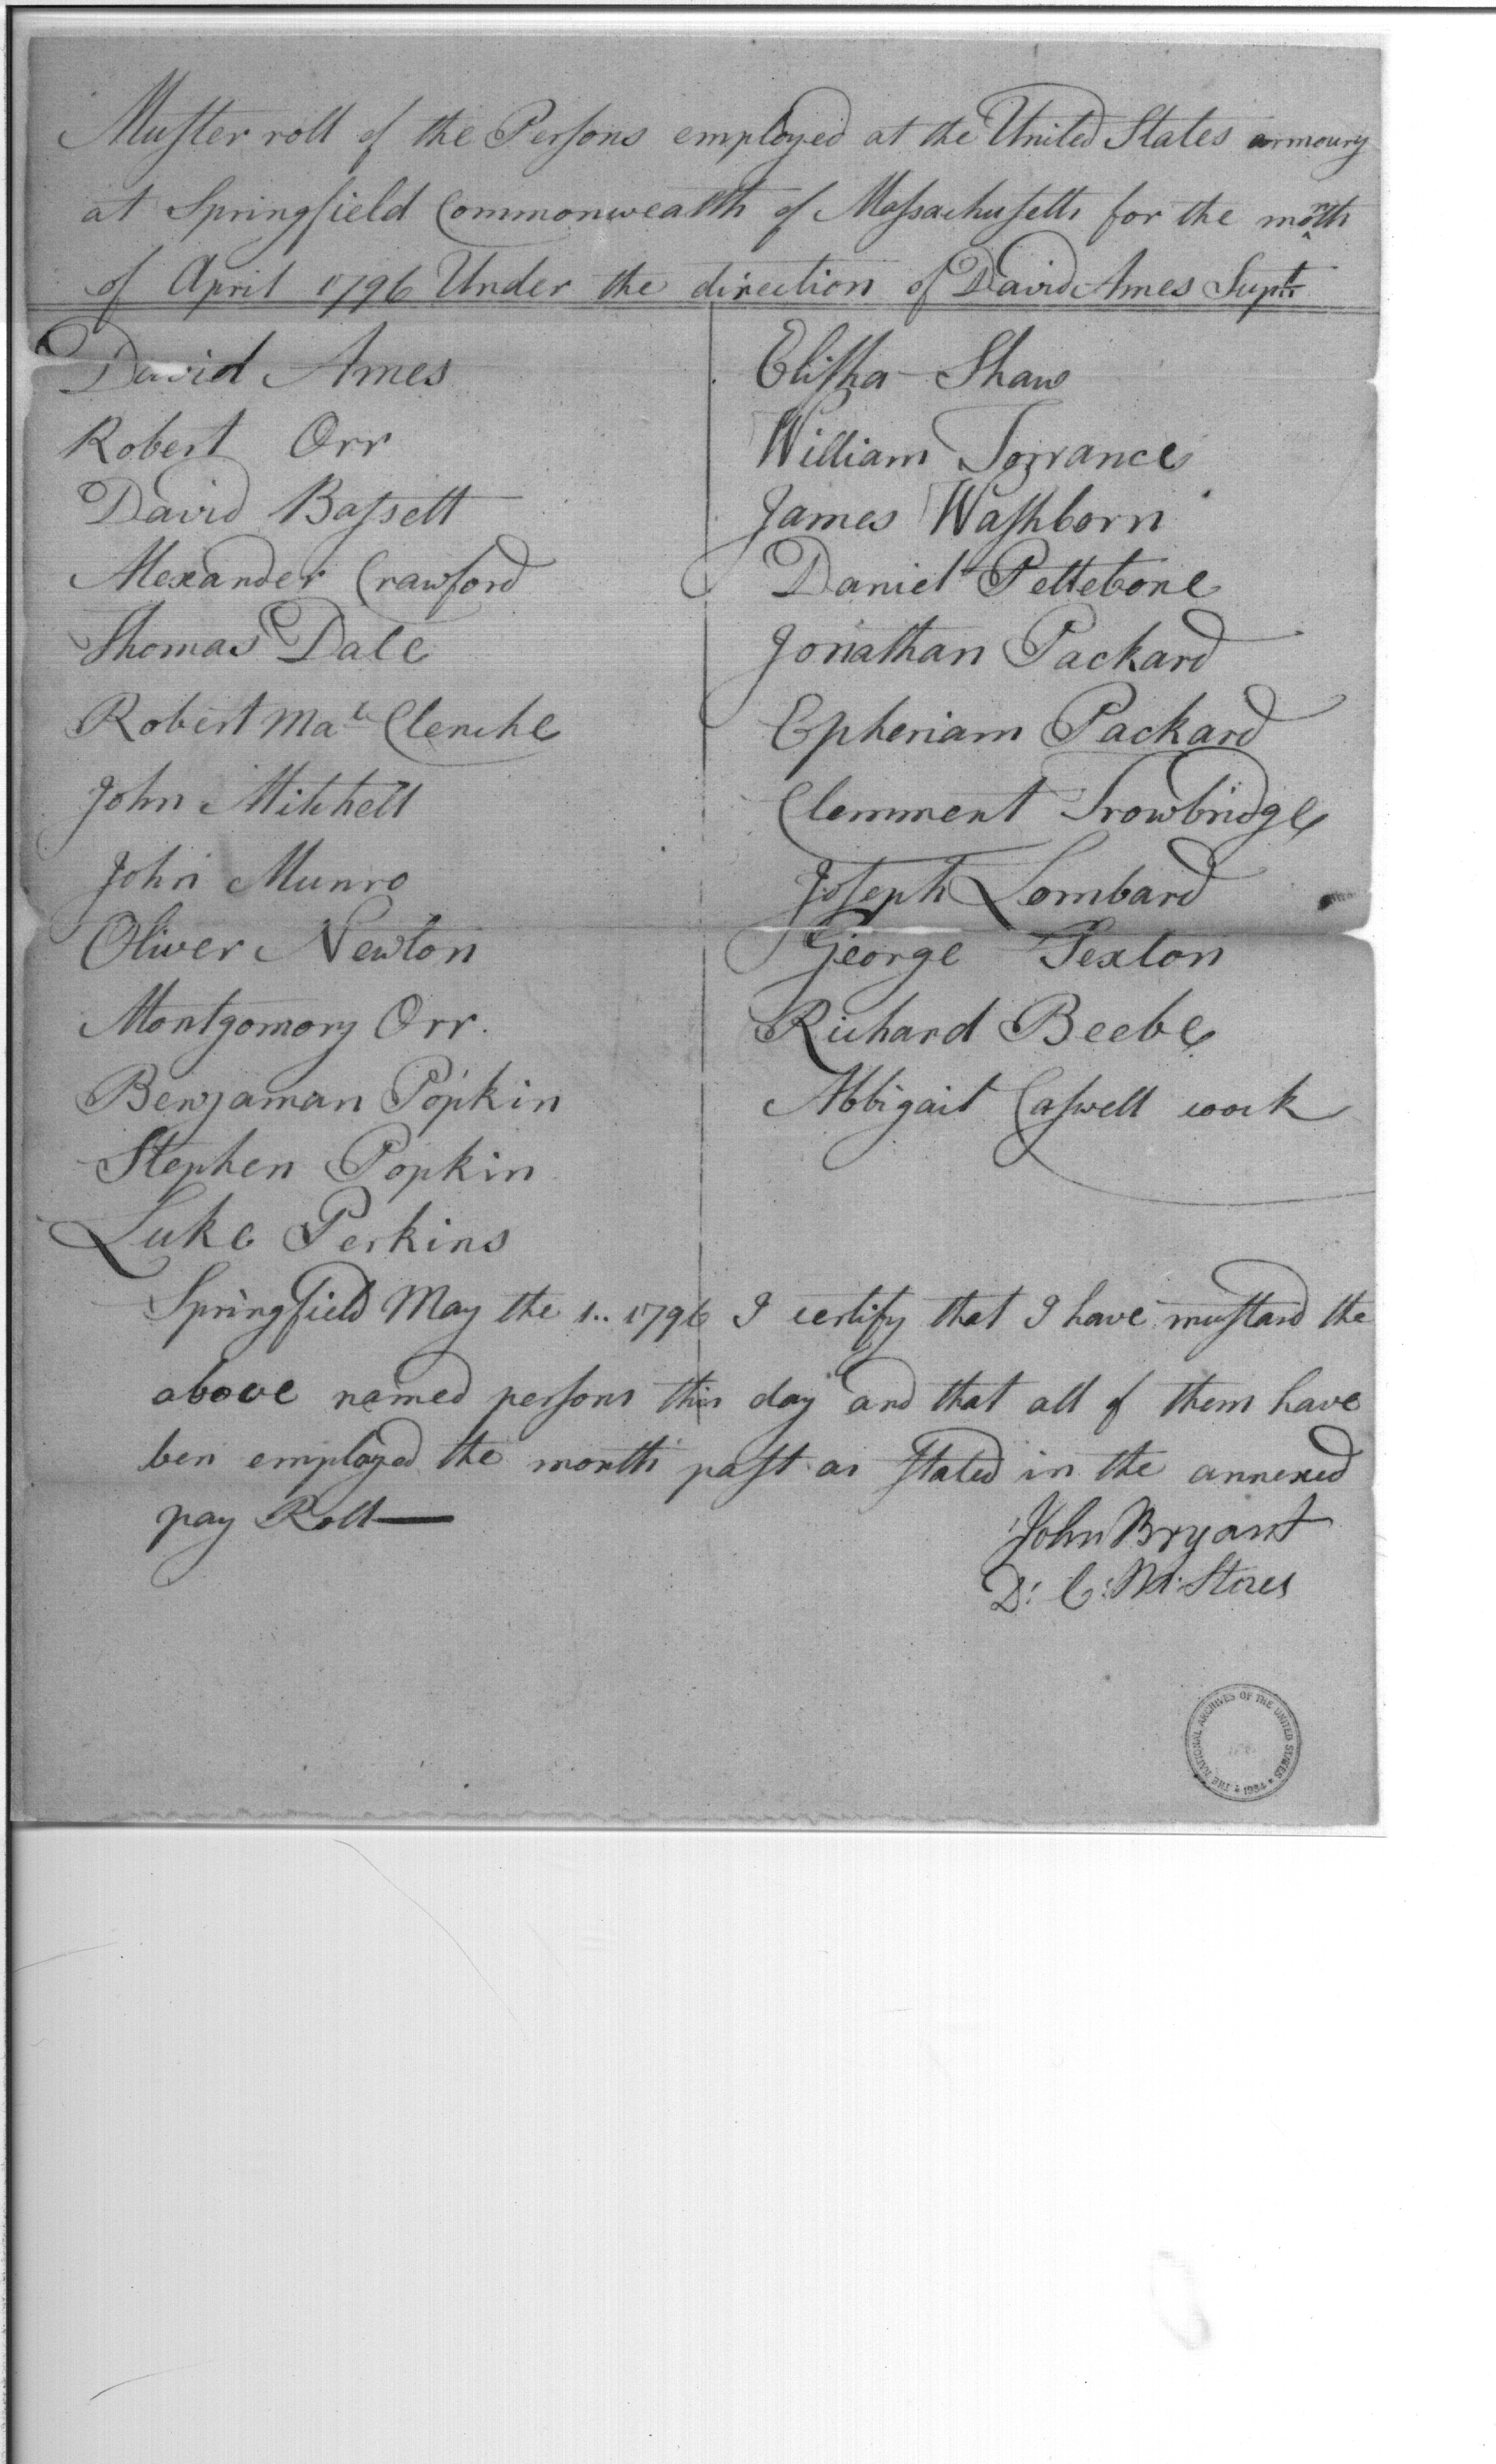 Muster roll of the Persons employed at the United States armoury
at Springfield Commonwealth of Massachusetts for the month
of April 1796 Under the direction of David Ames Supt
David Ames
Robert Orr
David Bassett
Alexander Crawford
Thomas Dale
Robert Mac Clenche
John Mitchell
John Munro
Oliver Newton
Montgomory Orr.
Benjaman Popkin
Stephen Popkin
Luke Perkins
Elisha Shaw
William Torrance
James Washborn
Daniel Pettebone
Jonathan Packard
Epheriam Packard
Clemment Trowbridge
Joseph Lombard
George Sexton
Richard Beebe
Abbigail Caswell work
Springfield May the 1.. 1796 I certify that I have mustard the
above named persons this day and that all of them have
ben employed the month past as stated in the annexed
pay Roll—
John Bryant
D: C: M: Stores
THE NATIONAL ARCHIVES OF THE UNITED STATES * 1934 *